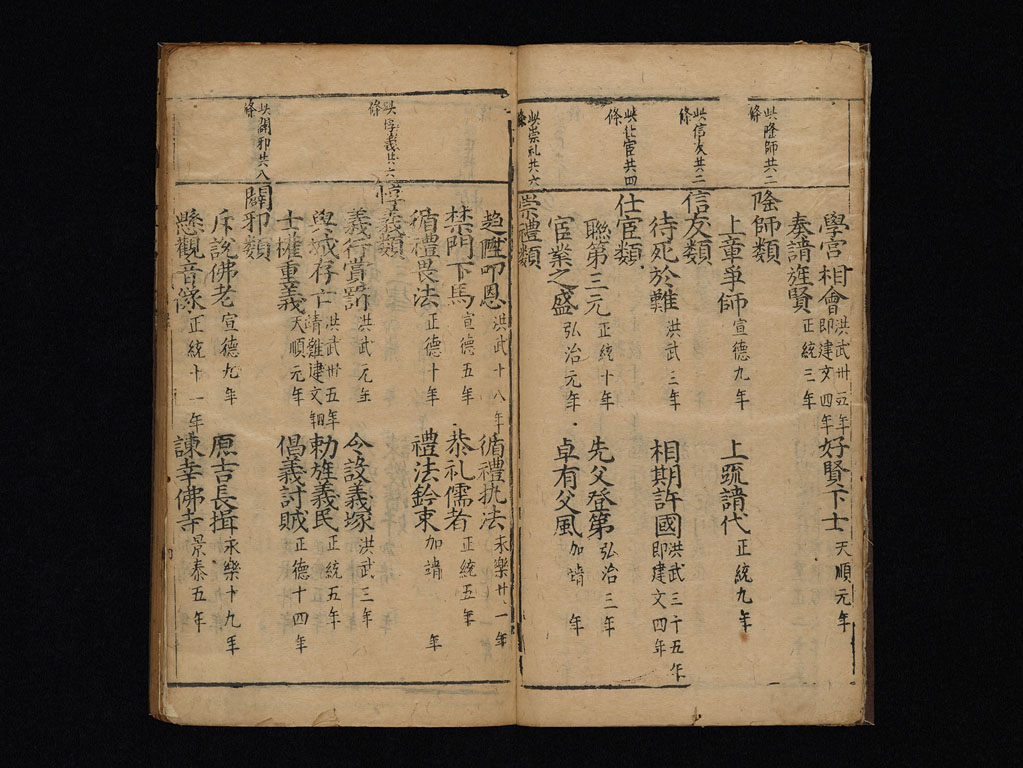 學宫相會洪武卅五年即建文四年 好賢下士天順元年
奏請旌賢正統三年
此隆師共二條
隆師類
上章爭師宣德九年 上疏請代正統九年
此信友共二條
信友類
待死於難洪武三年 相期許國洪武三十五年即建文四年
此仕宦共四條
仕宦類
聯第三元正統十年 先父登第弘治三年
宦業之盛弘治元年 卓有父風加靖 年
此崇礼共六條
崇禮類
趋陞叩恩洪武十八年 循禮执法永樂廿一年
禁門下馬宣德五年 恭礼儒者正統五年
循禮畏法正德十年 禮法鈐束加靖 年
此惇義共六條
惇義類
義行賞罰洪武元年 令設義塚洪武三年
與城存亡洪武卅五年靖難建文四年 勅旌義民正統五年
士權重義天順元年 倡義討賊正德十四年
此闢邪共八條
闢邪類
斥說佛老宣德九年 原吉長揖永樂十九年
懸觀音像正統十一年 諫幸佛寺景泰五年